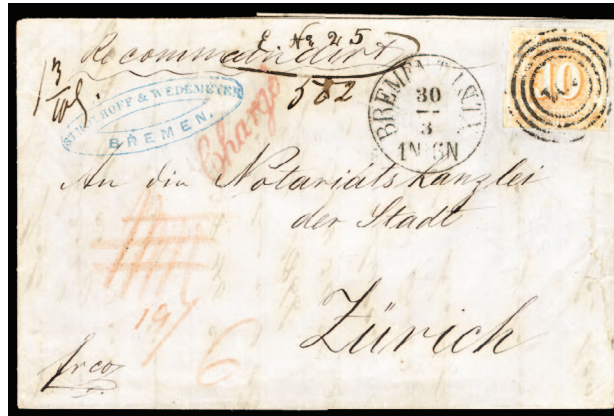 No 25
Recommandirt
HOFF & WEDEMEYER
BREMEN.
Chargé
562
BREMEN
30
3
1N-6N
10
An die Notariatskanzlei
der Stadt
Zürich
frco
6